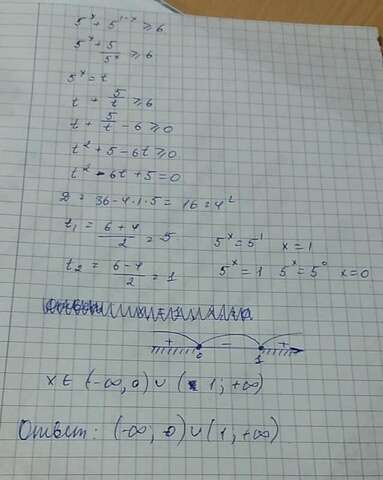 5^x + 5^{1-x} ≥ 6
5^x + 5/5^x ≥ 6
5^x = t
t + 5/t ≥ 6
t + 5/t - 6 ≥ 0
t² + 5 - 6t ≥ 0
t² - 6t + 5 = 0
D = 36 - 4·1·5 = 16 = 4²
t₁ = (6 + 4)/2 = 5 5^x = 5¹ x = 1
t₂ = (6 - 4)/2 = 1 5^x = 1 5^x = 5⁰ x = 0
+ - +
0 1
x ∈ (-∞, 0) ∪ (1; +∞)
Ответ: (-∞; 0) ∪ (1; +∞)